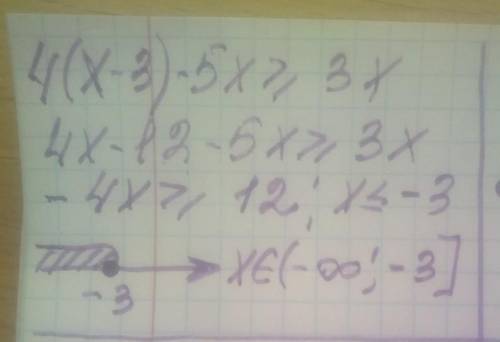 4(x-3)-5x⩾3x
4x-12-5x⩾3x
-4x⩾12; x≤-3
-3
x∈(-∞;-3]